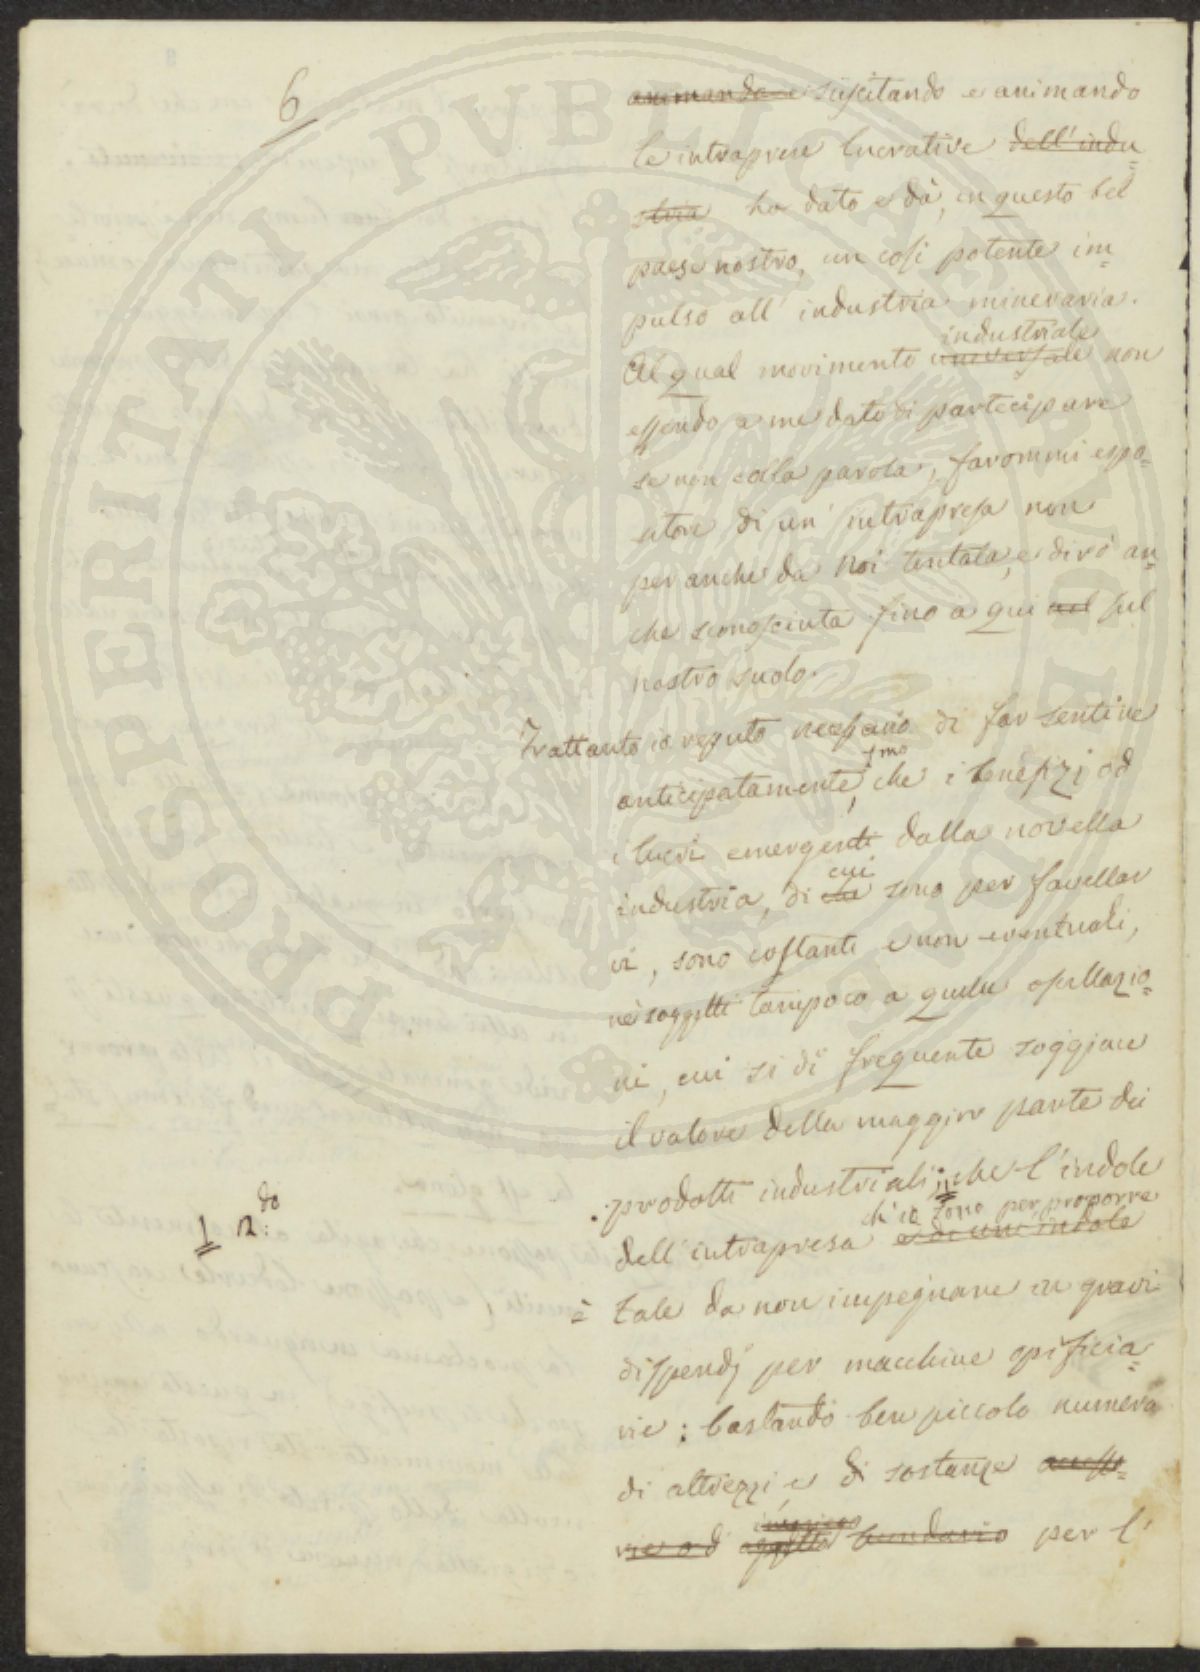 6
animando e suscitando e animando
le intraprese lucrative dell'indu=
stria ha dato e dà, in questo bel
paese nostro, un così potente im=
pulso all'industria mineraria.
industriale
Al qual movimento universale non
essendo a me dato di partecipare
se non colla parola, farommi espo=
sitore di un'intrapresa non
per anche da noi tentata, e dirò an=
che sconosciuta fino a qui nel sul
nostro suolo.
Trattanto io reputo necessario di far sentire
1mo
anticipatamente, che i benefizj od
i lucri emergenti dalla novella
cui
industria, di sono per favellar
vi, sono costanti e non eventuali,
nè soggetti tampoco a quelle oscillazio=
ni, cui si di frequente soggiace
il valore della maggior parte dei
prodotti industriali; che l'indole
ch'io sono per proporre
dell'intrapresa e di un'indole
1 2.do:
è tale da non impegnare in gravi
dispendj per macchine opificia=
rie: bastando ben piccolo numero
di attrezzi e di sostanze accesso=
rie od per l'